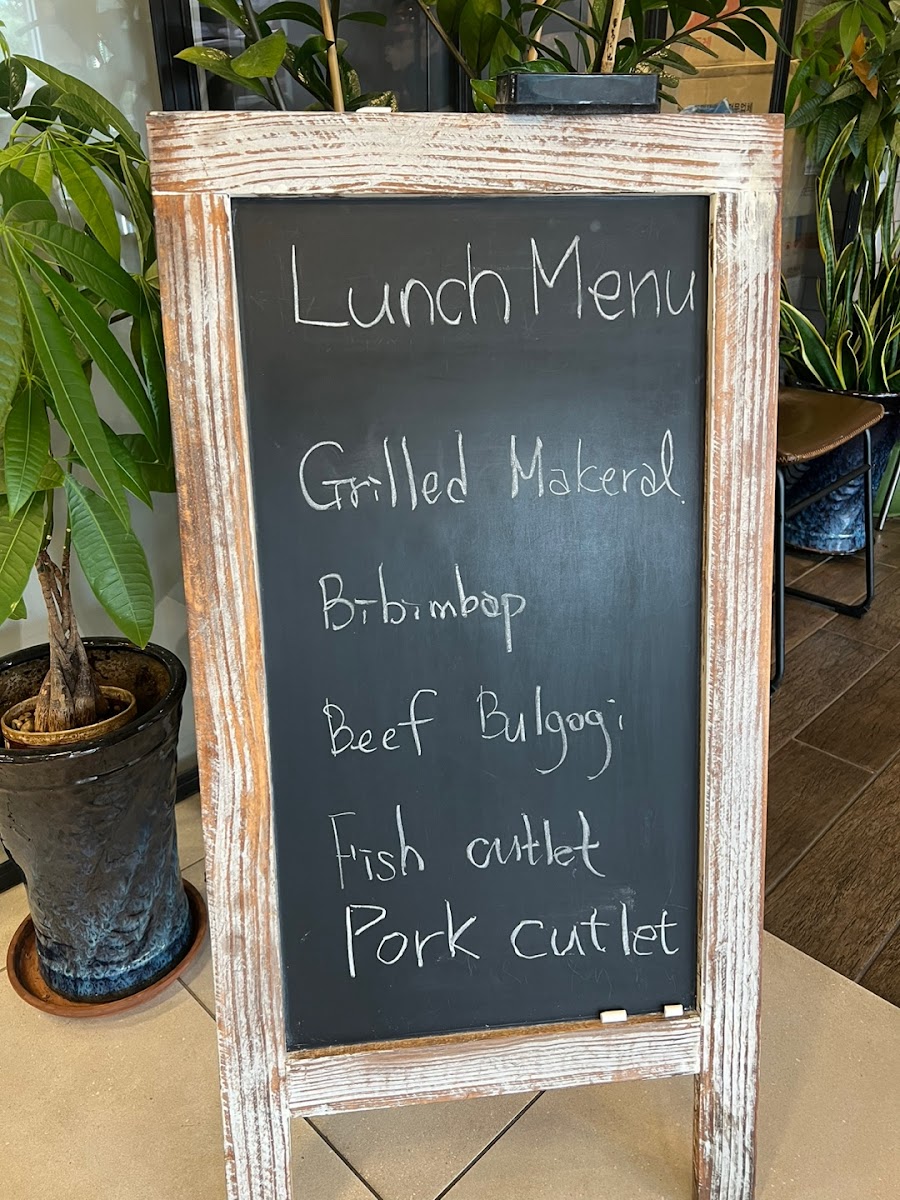 Lunch Menu
Grilled Makeral
Bibimbap
Beef Bulgogi
Fish cutlet
Pork cutlet